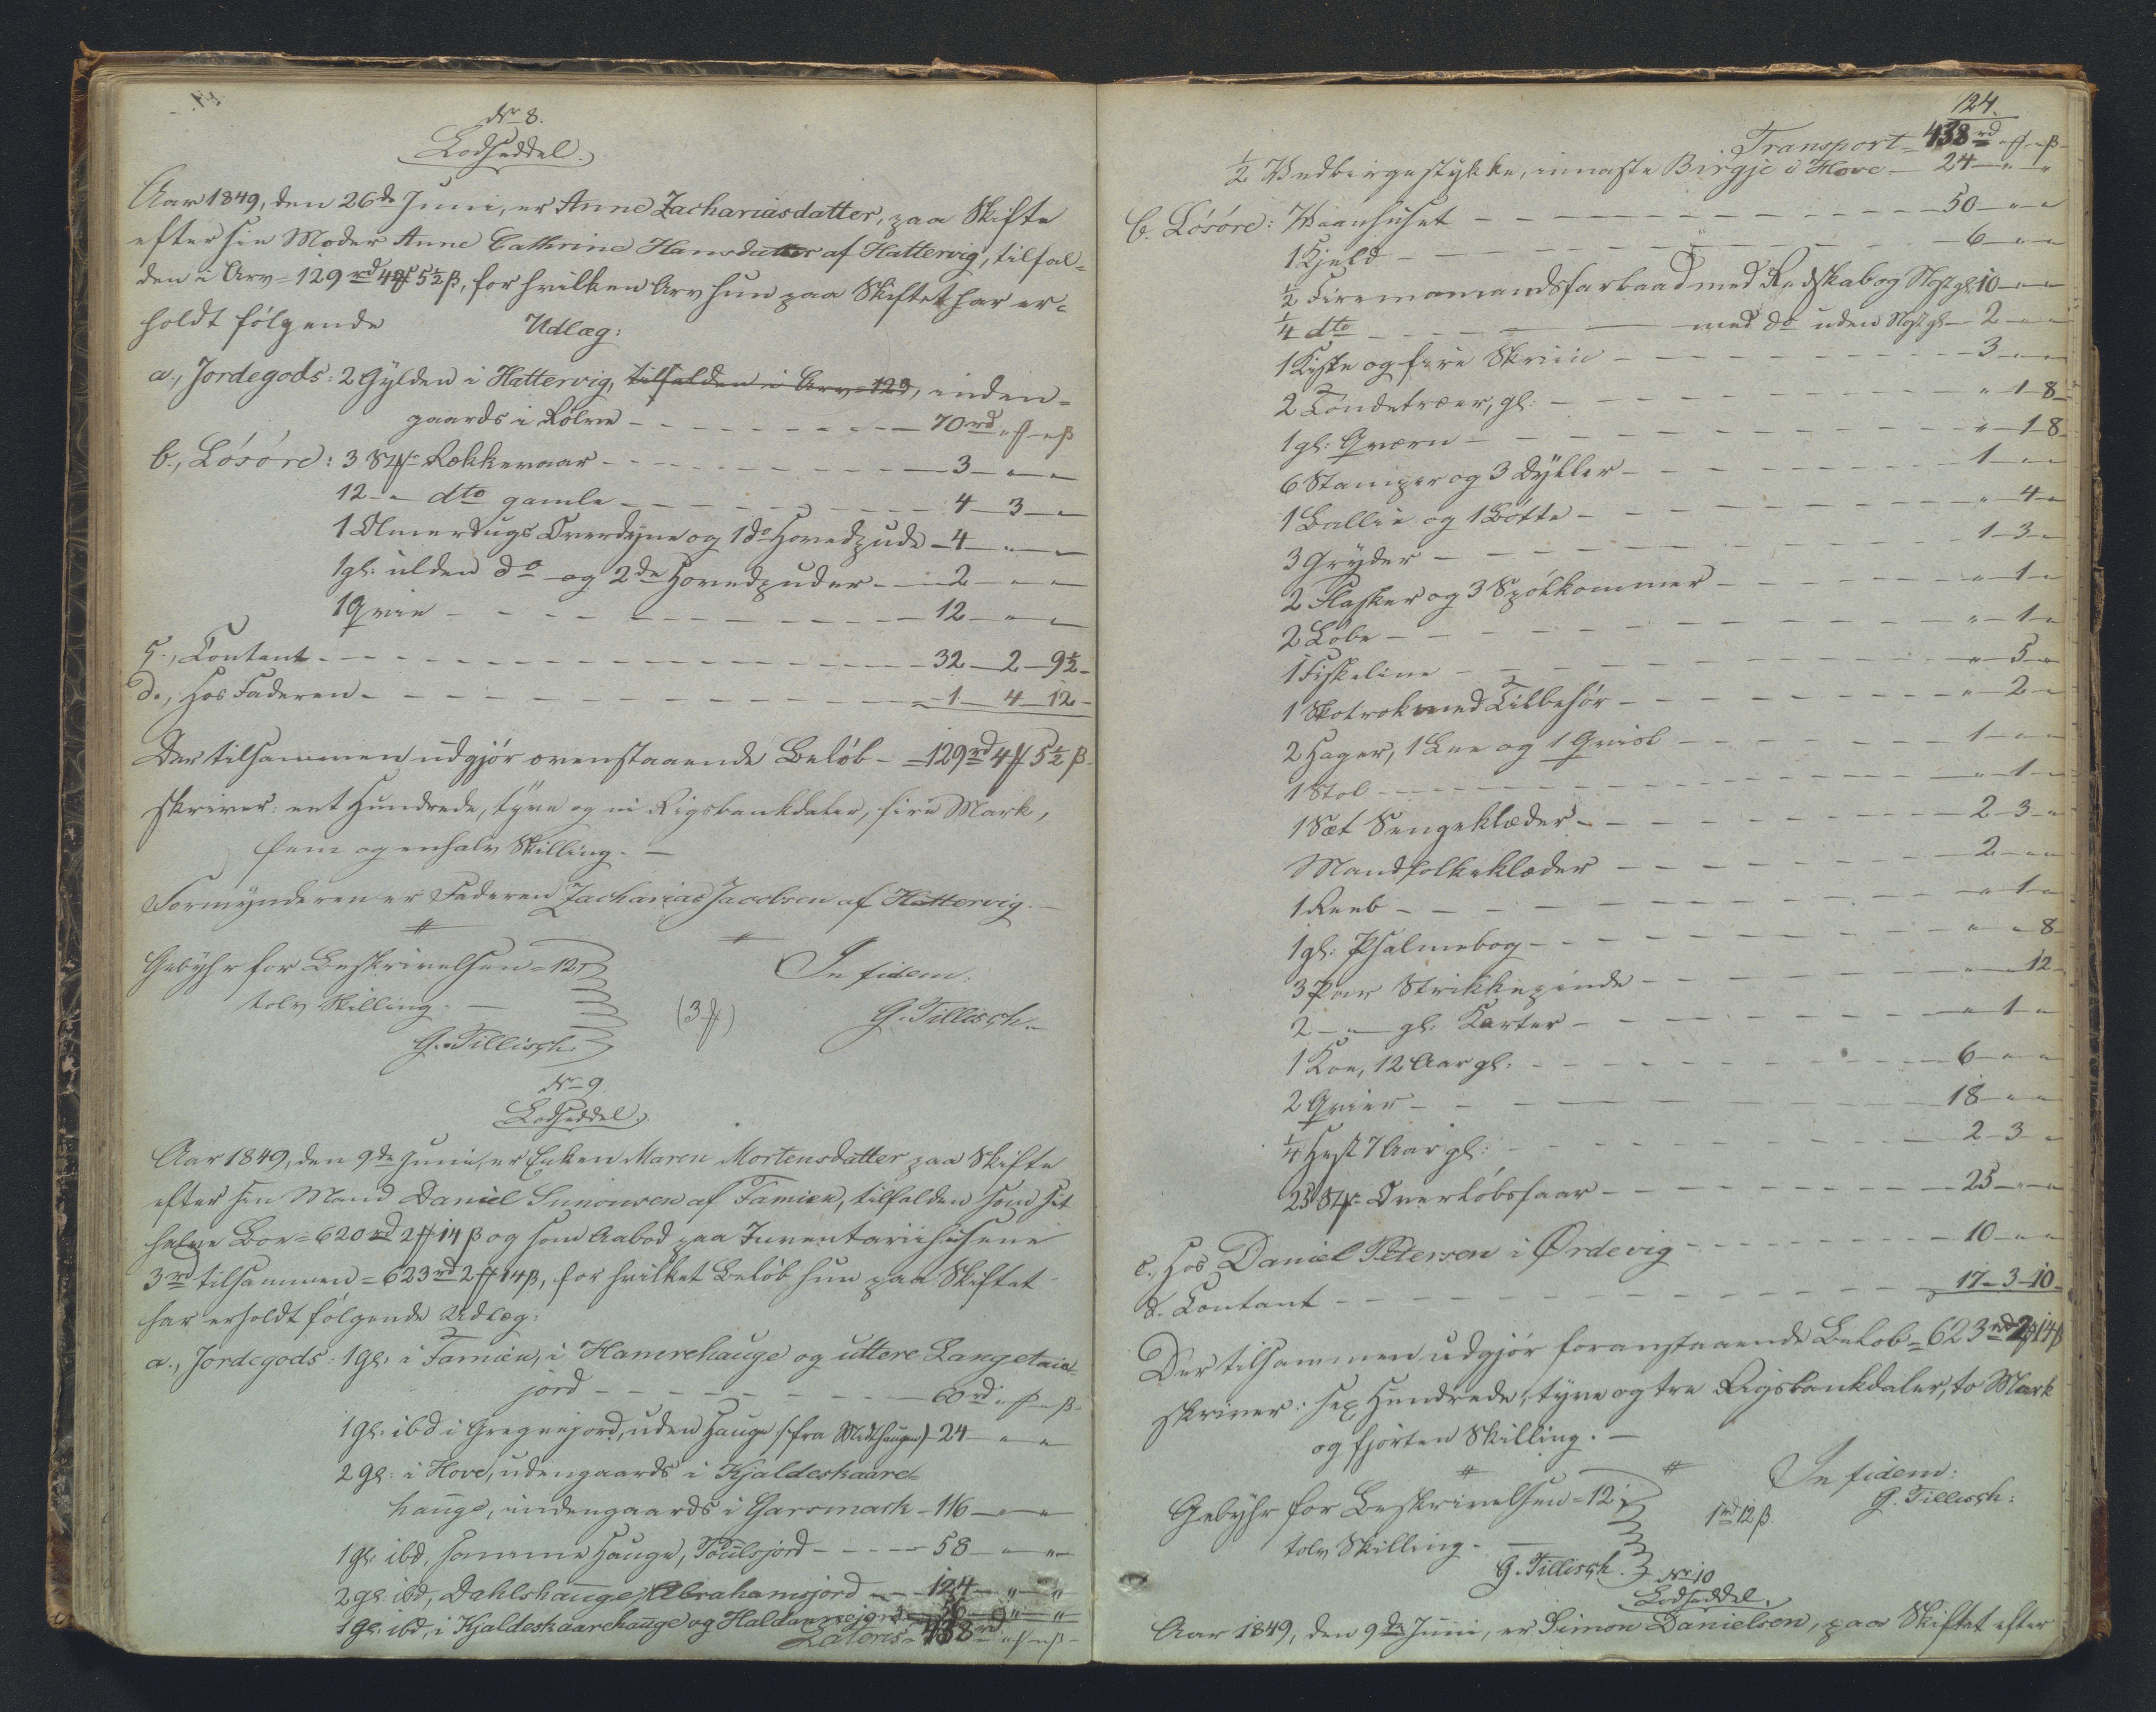 No 8.
Lodseddel.
Aar 1849, den 26de Juni, er Anne Zachariasdatter, paa Skifte
efter sin Moder Anne Cathrine Hansdatter af Hattervig, tilfal=
den i Arv = 129rd 4 5½ß, for hvilken Arv hun paa Skiftet har er=
holdt følgende Udlæg:
a., Jordegods: 2 Gylden i Hattervig, tilfalden i Arv 129, inden=
gaards i Kólve - 70rd " "ß
b., Lósóre: 3 Stk Rækkevaar - 3 - " - "
12 - " dto gamle - 4 - 3 - "
1 Olmerdugs Overdyne og 1 do Hovedpude - 4 - " - "
1 gl: ulden do og 2de Hovedpuder - 2 - " - "
1 Qvie - 12 - " - "
c., Contant - 32 - 2 - 9½ -
d., hos Faderen - 1 - 4 - 12 -
Der tilsammen udgjør ovenstaaende Beløb - 129rd 4 5½ß
skriver: eet Hundrede, tyve og ni Rigsbankdaler, fire Mark,
fem og enhalv Skilling. -
Formynderen er Faderen Zacharias Jacobsen af Hattervig. -
Gebyhr for Beskrivelsen = 12ß In fidem:
tolv Skilling. - (3) G. Tillisch.
G. Tillisch.
No 9
Lodseddel.
Aar 1849, den 9de Juni, er Enken Maren Mortensdatter paa Skifte
efter sin Mand Daniel Simonsen af Famien, tilfalden som sit
halve Boe = 620rd 2 14ß og som Aabod paa Inventariihusene
3rd tilsammen = 623rd 2 14ß, for hvilket Beløb hun paa Skiftet
har erholdt følgende Udlæg:
a., Jordegods: 1 Gl: i Famien, i Hanerehauge og uttere Langetaie
jord - 60rd " "ß
1 Gl: ibd i Gregersjord, uden Hauge (fra Midthaugen) - 24 - " - "
2 Gl: i Hove, udengaards i Kjaldeskaare=
hauge, indengaards i Garsmark - 116 - " - "
1 gl: ibd, samme Hauge, Poulsjord - 58 - " - "
2 gl: ibd, Dahlshauge, Abrahamsjord - 124 - " - "
1 gl: ibd, i Kjaldeskaarehauge og Haldansjord - 56 - " - "
Lateris = 438rd " "ß
124.
Transport = 438rd " "ß
½ Vedbirgestykke, innaste Birgje i Hove - 24 - " - "
b. Lósóre: Vaanhuset - 50 - " - "
1 Kjeld - 6 - " - "
½ Firemamandsfarbaad med Redskab og Nyst gl: 10 - " - "
¼ dto - med do uden Nyst gl - 2 - " - "
1 Kiste og fire Skriin - 3 - " - "
2 Tøndetræer, gl: - " - 1 - 8 -
1 gl: Qværn - " - 1 - 8 -
6 Stamper og 3 Dyller - 1 - " - "
1 Ballie og 1 Bøtte - " - 4 - "
3 Gryder - 1 - 3 - "
2 Flasker og 3 Spólkommer - " - 1 - "
2 Lóbe - " - 1 - "
1 Fiskeline - " - 5 - "
1 Skotrok med Tilbehør - " - 2 - "
2 Hager, 1 Lee og 1 Qvisl - 1 - " - "
1 Stol - " - 1 - "
1 Sæt Sengeklæder - 2 - 3 - "
Mandfolkeklæder - 2 - " - "
1 Reeb - " - 1 - "
1 gl: Psalmebog - " - " - 8 -
3 Par Strikkepinde - " - " - 12 -
2 - " - gl: Karter - " - 1 - "
1 Koe, 12 Aar gl: - 6 - " - "
2 Qvier - 18 - " - "
¼ Hest 7 Aar gl: - 2 - 3 - "
25 Stk Overløbsfaar - 25 - " - "
c., hos Daniel Petersen i Ørdevig - 10 - " - "
d. Contant - 17 - 3 - 10 -
Der tilsammen udgjør foranstaaende Beløb = 623rd 2 14ß
skriver: sex Hundrede, tyve og tre Rigsbankdaler, to Mark
og fjorten Skilling. -
Gebyhr for Beskrivelsen = 12ß In fidem:
tolv Skilling. - 1rd 12ß G. Tillisch:
G. Tillisch.
No 10
Lodseddel.
Aar 1849, den 9de Juni, er Simon Danielsen, paa Skiftet efter